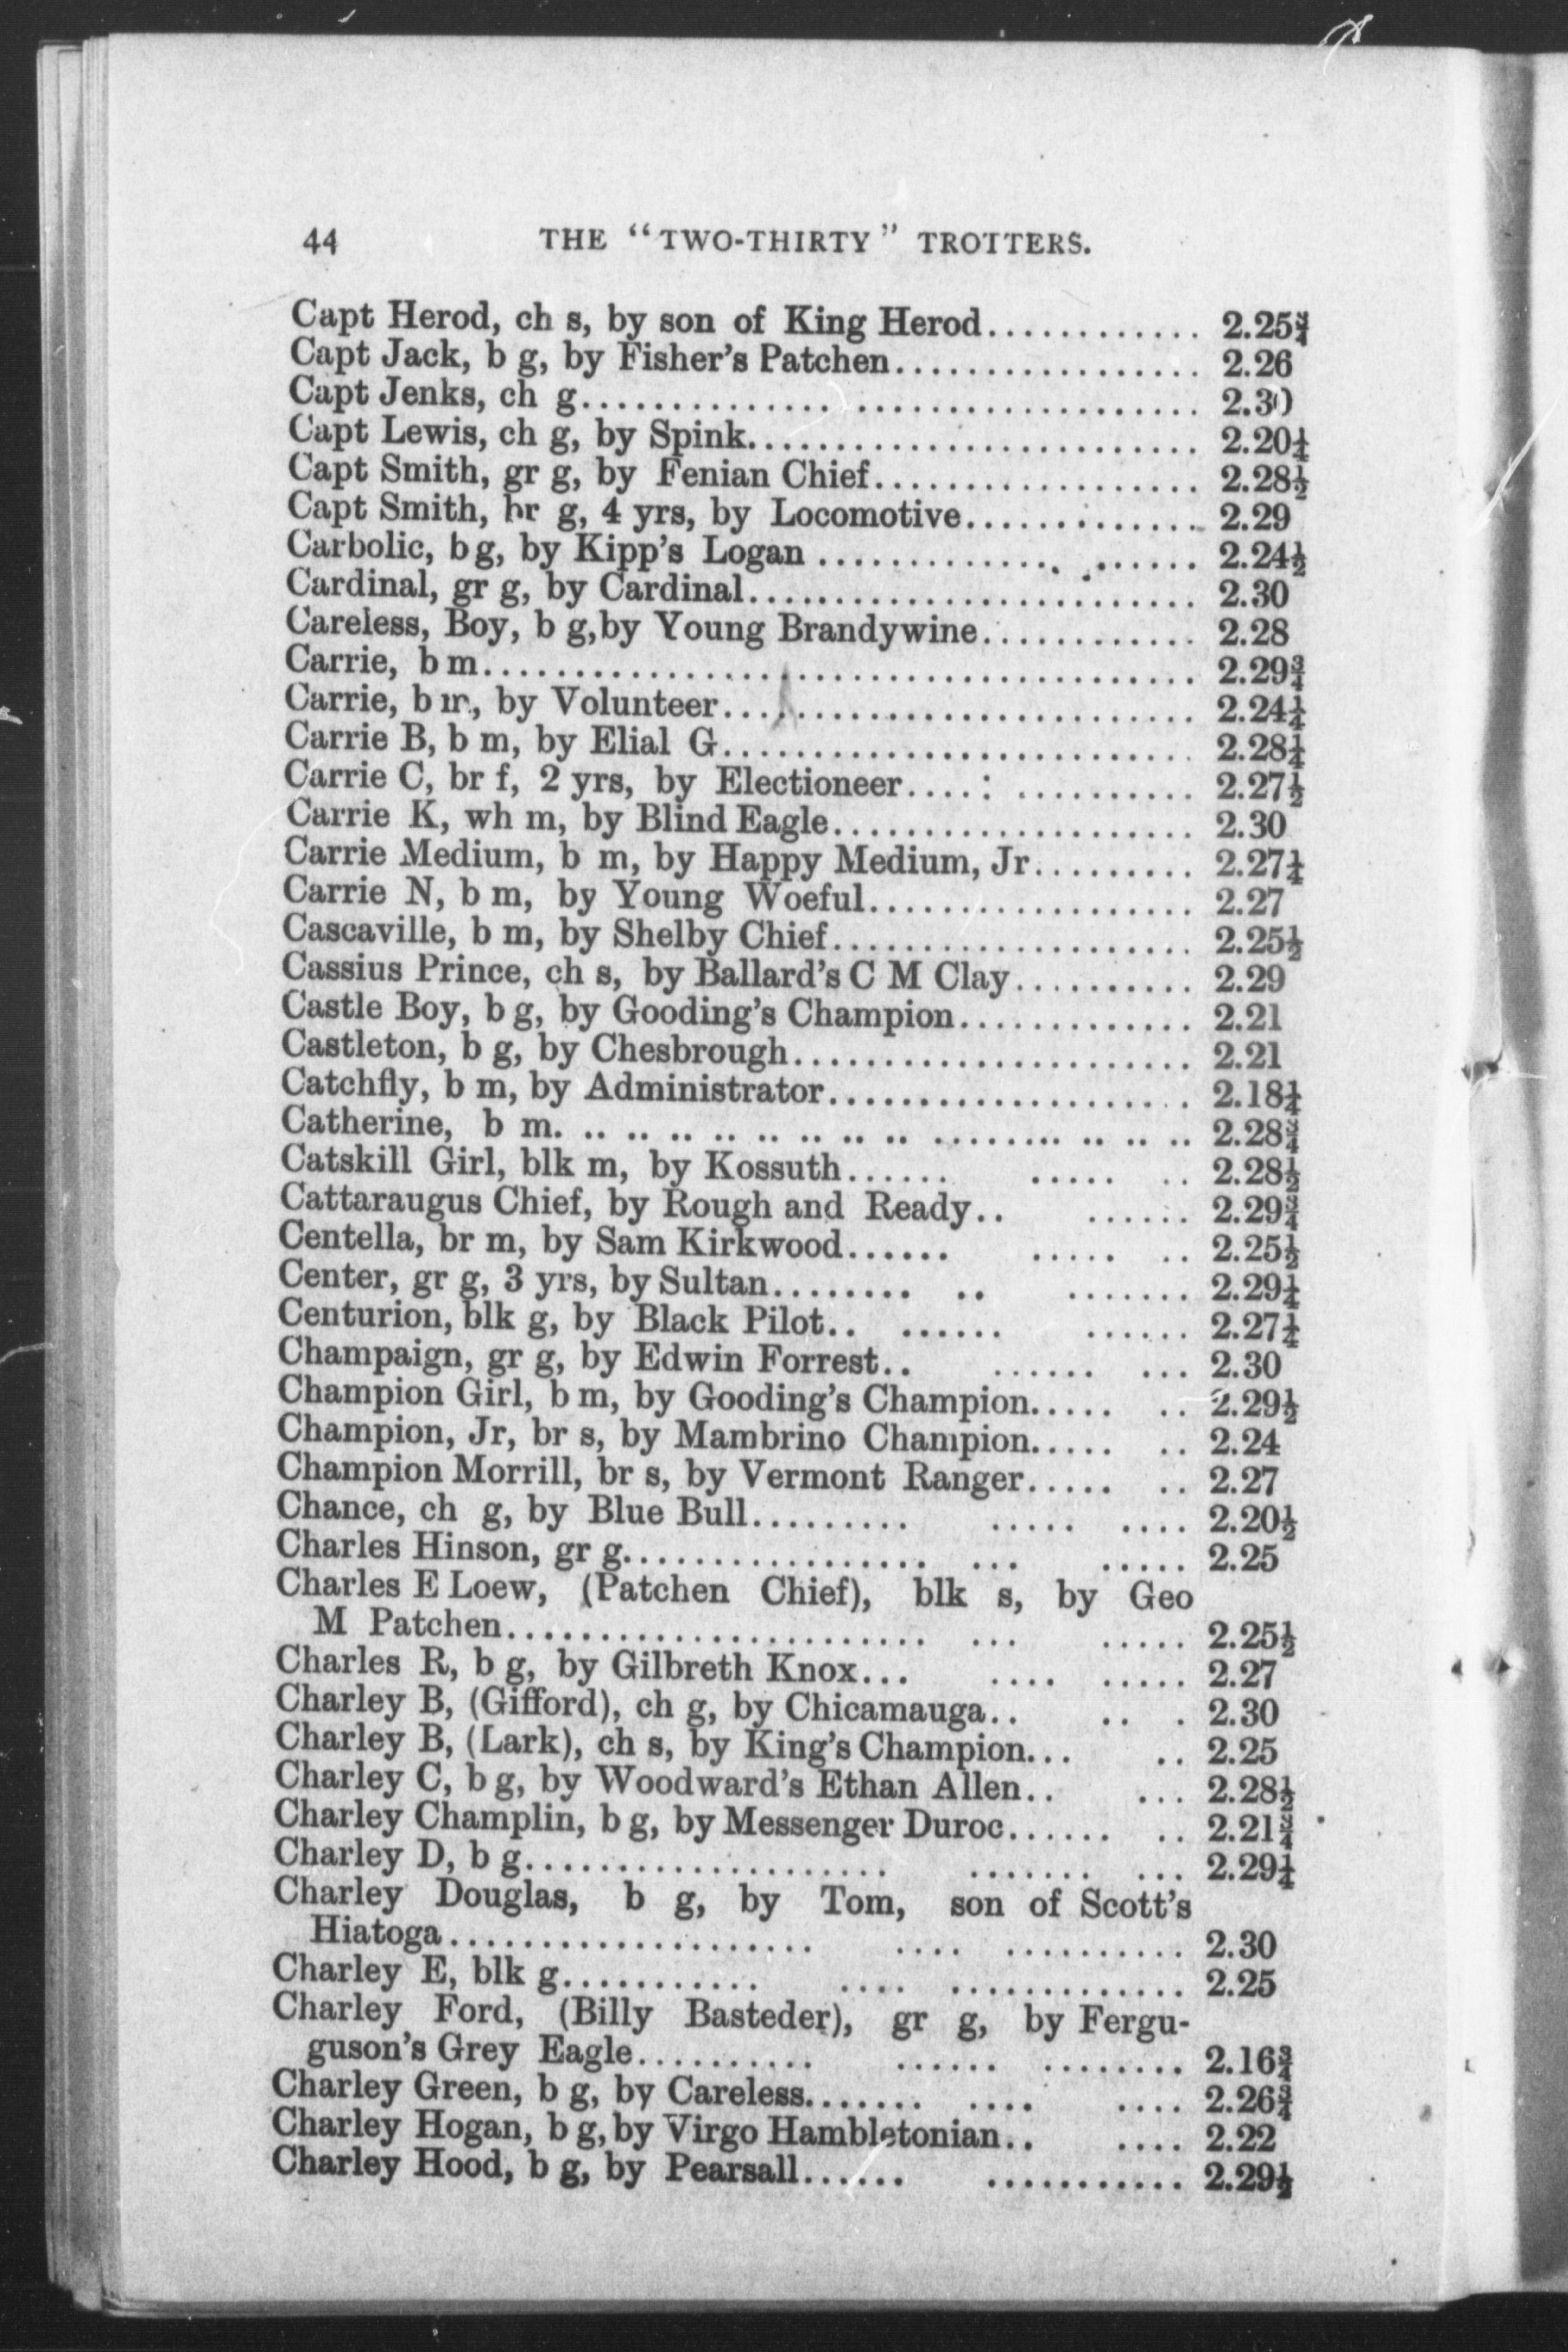 44 THE "TWO-THIRTY" TROTTERS.
Capt Herod, ch s, by son of King Herod............ 2.25¾
Capt Jack, b g, by Fisher's Patchen................. 2.26
Capt Jenks, ch g.................................. 2.30
Capt Lewis, ch g, by Spink......................... 2.20¼
Capt Smith, gr g, by Fenian Chief.................. 2.28½
Capt Smith, br g, 4 yrs, by Locomotive............. 2.29
Carbolic, b g, by Kipp's Logan .................... 2.24½
Cardinal, gr g, by Cardinal......................... 2.30
Careless, Boy, b g,by Young Brandywine............ 2.28
Carrie, b m....................................... 2.29¾
Carrie, b m, by Volunteer.......................... 2.24¼
Carrie B, b m, by Elial G.......................... 2.28¼
Carrie C, br f, 2 yrs, by Electioneer....: .......... 2.27½
Carrie K, wh m, by Blind Eagle.................... 2.30
Carrie Medium, b m, by Happy Medium, Jr......... 2.27¼
Carrie N, b m, by Young Woeful.................. 2.27
Cascaville, b m, by Shelby Chief.................... 2.25½
Cassius Prince, ch s, by Ballard's C M Clay.......... 2.29
Castle Boy, b g, by Gooding's Champion............. 2.21
Castleton, b g, by Chesbrough...................... 2.21
Catchfly, b m, by Administrator.................... 2.18¼
Catherine, b m. .. .. .. .. .. .. .. .. ........ .. .. .. 2.28¾
Catskill Girl, blk m, by Kossuth...... ..... .. 2.28½
Cattaraugus Chief, by Rough and Ready.. ...... 2.29¾
Centella, br m, by Sam Kirkwood...... ..... .. 2.25½
Center, gr g, 3 yrs, by Sultan........ .. ....... 2.29¼
Centurion, blk g, by Black Pilot.. ...... ...... 2.27¼
Champaign, gr g, by Edwin Forrest.. ...... ... 2.30
Champion Girl, b m, by Gooding's Champion..... .. 2.29½
Champion, Jr, br s, by Mambrino Champion..... .. 2.24
Champion Morrill, br s, by Vermont Ranger..... .. 2.27
Chance, ch g, by Blue Bull......... ..... .... 2.20½
Charles Hinson, gr g................. ... ..... 2.25
Charles E Loew, (Patchen Chief), blk s, by Geo
M Patchen....................... ... ..... 2.25½
Charles R, b g, by Gilbreth Knox... .... ..... 2.27
Charley B, (Gifford), ch g, by Chicamauga.. .. . 2.30
Charley B, (Lark), ch s, by King's Champion... .. 2.25
Charley C, b g, by Woodward's Ethan Allen.. ... 2.28½
Charley Champlin, b g, by Messenger Duroc...... .. 2.21¾
Charley D, b g.................... ....... ... 2.29¼
Charley Douglas, b g, by Tom, son of Scott's
Hiatoga.................... .... .......... 2.30
Charley E, blk g........... .... ............. 2.25
Charley Ford, (Billy Basteder), gr g, by Fergu-
guson's Grey Eagle.......... ...... ........ 2.16¾
Charley Green, b g, by Careless....... .... .... 2.26¾
Charley Hogan, b g, by Virgo Hambletonian.. .... 2.22
Charley Hood, b g, by Pearsall...... ........... 2.29½